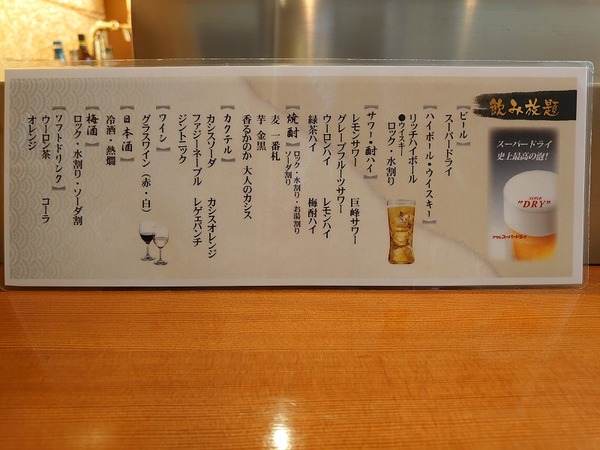 飲み放題
スーパードライ
史上最高の泡!
SUPER
"DRY"
アサヒスーパードライ
【ビール】
スーパードライ
【ハイボール・ウイスキー】
リッチハイボール
●ウイスキー
ロック・水割り
【サワー・酎ハイ】
レモンサワー 巨峰サワー
グレープフルーツサワー
ウーロンハイ レモンハイ
緑茶ハイ 梅酎ハイ
【焼酎】ロック・水割り・お湯割り
ソーダ割り
麦 一番札
芋 金黒
香るかのか 大人のカシス
【カクテル】
カシスソーダ カシスオレンジ
ファジーネーブル レゲエパンチ
ジントニック
【ワイン】
グラスワイン(赤・白)
【日本酒】
冷酒・熱燗
【梅酒】
ロック・水割り・ソーダ割
【ソフトドリンク】
ウーロン茶 コーラ
オレンジ